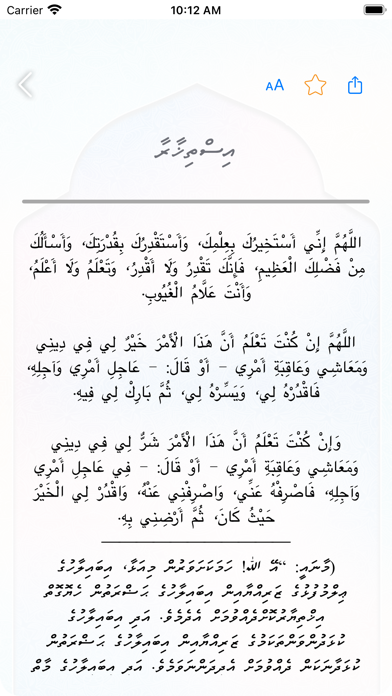 Carrier
10:12 AM
AA
އިސްތިޚާރާ
اللَّهُمَّ إِنِّي أَسْتَخِيرُكَ بِعِلْمِكَ، وَأَسْتَقْدِرُكَ بِقُدْرَتِكَ، وَأَسْأَلُكَ
مِنْ فَضْلِكَ الْعَظِيمِ، فَإِنَّكَ تَقْدِرُ وَلَا أَقْدِرُ، وَتَعْلَمُ وَلَا أَعْلَمُ،
وَأَنْتَ عَلَّامُ الْغُيُوبِ.
اللَّهُمَّ إِنْ كُنْتَ تَعْلَمُ أَنَّ هَذَا الْأَمْرَ خَيْرٌ لِي فِي دِينِي
وَمَعَاشِي وَعَاقِبَةِ أَمْرِي – أَوْ قَالَ: – عَاجِلِ أَمْرِي وَآجِلِهِ،
فَاقْدُرْهُ لِي، وَيَسِّرْهُ لِي، ثُمَّ بَارِكْ لِي فِيهِ.
وَإِنْ كُنْتَ تَعْلَمُ أَنَّ هَذَا الْأَمْرَ شَرٌّ لِي فِي دِينِي
وَمَعَاشِي وَعَاقِبَةِ أَمْرِي – أَوْ قَالَ: – فِي عَاجِلِ أَمْرِي
وَآجِلِهِ، فَاصْرِفْهُ عَنِّي، وَاصْرِفْنِي عَنْهُ، وَاقْدُرْ لِي الْخَيْرَ
حَيْثُ كَانَ، ثُمَّ أَرْضِنِي بِهِ.
(މާނައީ: “އޭ ﷲ! ހަމަކަށަވަރުން މިއަޅާ، އިބައިލާހުގެ
ޢިލްމުފުޅުގެ ޒަރިއްޔާއިން އިބައިލާހުގެ ޙަޟްރަތުން ހެޔޮގޮތް
އިޚްތިޔާރުކޮށްދެއްވުމަށް އެދެމެވެ. އަދި އިބައިލާހުގެ
ކުޅަދުންވަންތަކަމުގެ ޒަރިއްޔާއިން އިބައިލާހުގެ ޙަޟްރަތުން
ކުޅަދާނަކަން ދެއްވުމަށް އެދިދަންނަވަމެވެ. އަދި އިބައިލާހުގެ މާތް